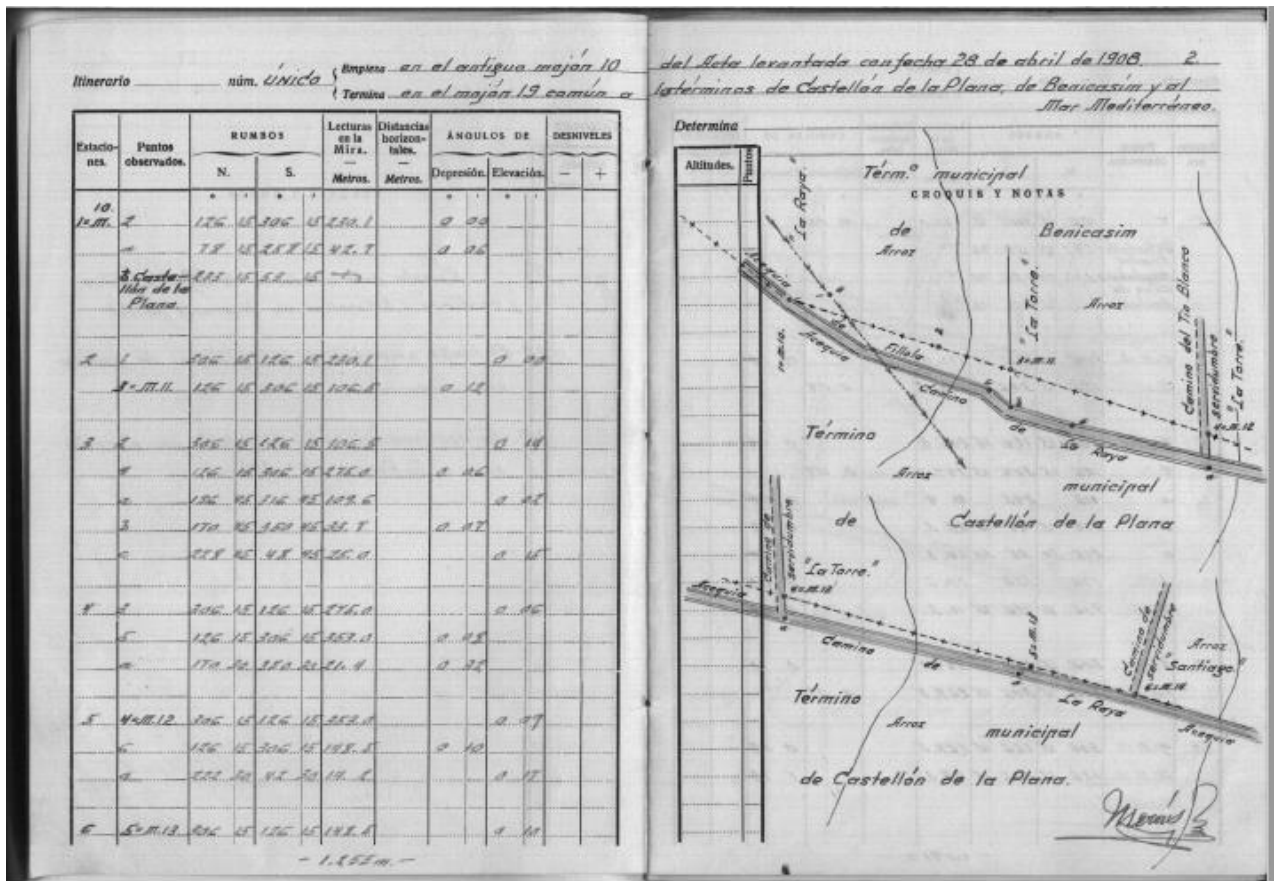 Itinerario núm. ÚNICO
Empieza en el antiguo mojón 10 del Acta levantada con fecha 28 de abril de 1908 2
Termina en el mojón 19 común a los términos de Castellón de la Plana, de Benicasim y al
Mar Mediterráneo.
Estaciones. Puntos observados. RUMBOS Lecturas en la Mira. Distancias horizontales. ÁNGULOS DE DESNIVELES
N. S. Metros. Metros. Depresión. Elevación. - +
10.
1=M. 2 126 15 306 15 230.1 0 00
a 78 15 258 15 42.8 0 06
Castellón de la Plana
2 1 306 15 126 15 230.1 0 00
3=M.11. 126 15 306 15 106.5 0 12
3 2 306 15 126 15 106.5 0 14
4 126 15 306 15 275.0 0 06
a 136 45 316 45 109.6 0 02
b 170 45 350 45 0 07
c 228 45 48 45 0 15
4 3 306 15 126 15 275.0 0 06
5 126 15 306 15 253.0 0 08
a 170 20 350 20 21.4 0 02
5 4=M.12 306 15 126 15 253.0 0 07
6 126 15 306 15 148.5 0 10
a 222 20 42 20 0 12
6 5=M.13 306 15 126 15 148.5 0 10
Determina
Altitudes. Puntos
CROQUIS Y NOTAS
Térm.º municipal
de
Benicasim
"La Raya."
Arroz
Arroz
"La Torre."
Camino del Tio Blanco
servidumbre
"La Torre."
Acequia
de
Fillola
Acequia
1=M.10.
3=M.11.
4=M.12
Camino
de
La Raya
Término
municipal
Arroz
de
Castellón de la Plana
Camino de
servidumbre
"La Torre."
4=M.12
Acequia
Camino
de
5=M.13
Camino de
servidumbre
Arroz
"Santiago."
6=M.14
La Raya
Acequia
Término
Arroz
municipal
de Castellón de la Plana.